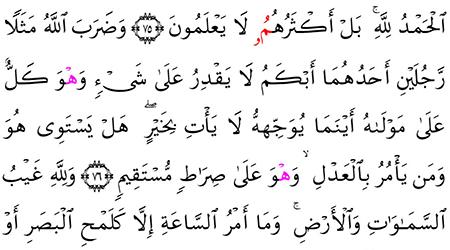 اَ۬لْحَمْدُ لِلهِۖ بَلْ أَكْثَرُهُمُۥ لَا يَعْلَمُونَ ۝٧٥ وَضَرَبَ اَ۬للَّهُ مَثَلًا
رَّجُلَيْنِ أَحَدُهُمَا أَبْكَمُ لَا يَقْدِرُ عَلَىٰ شَىْءٍ وَهْوَ كَلٌّ
عَلَىٰ مَوْلَىٰهُ أَيْنَمَا يُوَجِّههُّ لَا يَأْتِ بِخَيْرٍ هَلْ يَسْتَوِى هُوَ
وَمَن يَأْمُرُ بِالْعَدْلِ وَهْوَ عَلَىٰ صِرَاطٍ مُّسْتَقِيمٍ ۝٧٦ وَلِلَّهِ غَيْبُ
السَّمَاوَاتِ وَالْأَرْضِ وَمَا أَمْرُ السَّاعَةِ إِلَّا كَلَمْحِ الْبَصَرِ أَوْ